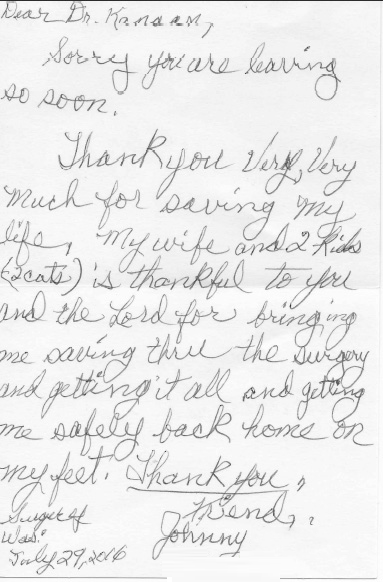 Dear Dr. Kanaan,
Sorry you are leaving
so soon.
Thank you Very, Very
Much for saving my
life, My wife and 2 Kids
(2cats) is thankful to you
and the Lord for bringing
me saving thru the Surgery
and getting it all and getting
me safely back home on
my feet. Thank you,
friend,
Johnny
Surgery
Was:
July 29, 2016